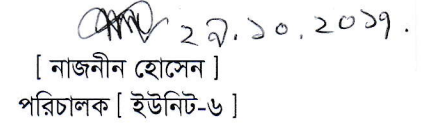 ২৯.১০.২০১৭.
[ নাজনীন হোসেন ]
পরিচালক [ ইউনিট-৬ ]